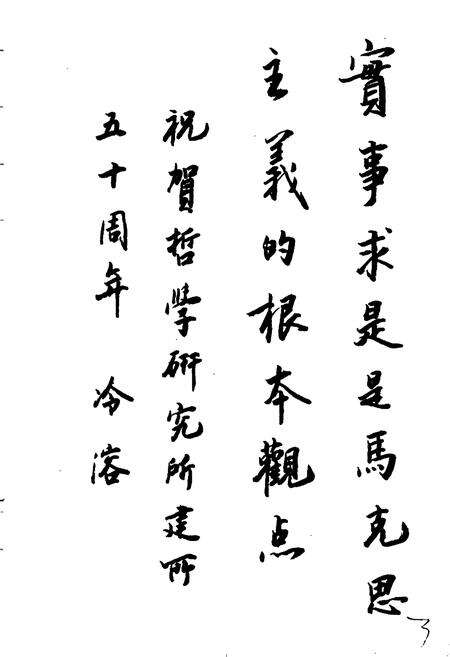 實事求是是馬克思
主義的根本觀点
祝賀哲學研究所建所
五十周年 冷溶